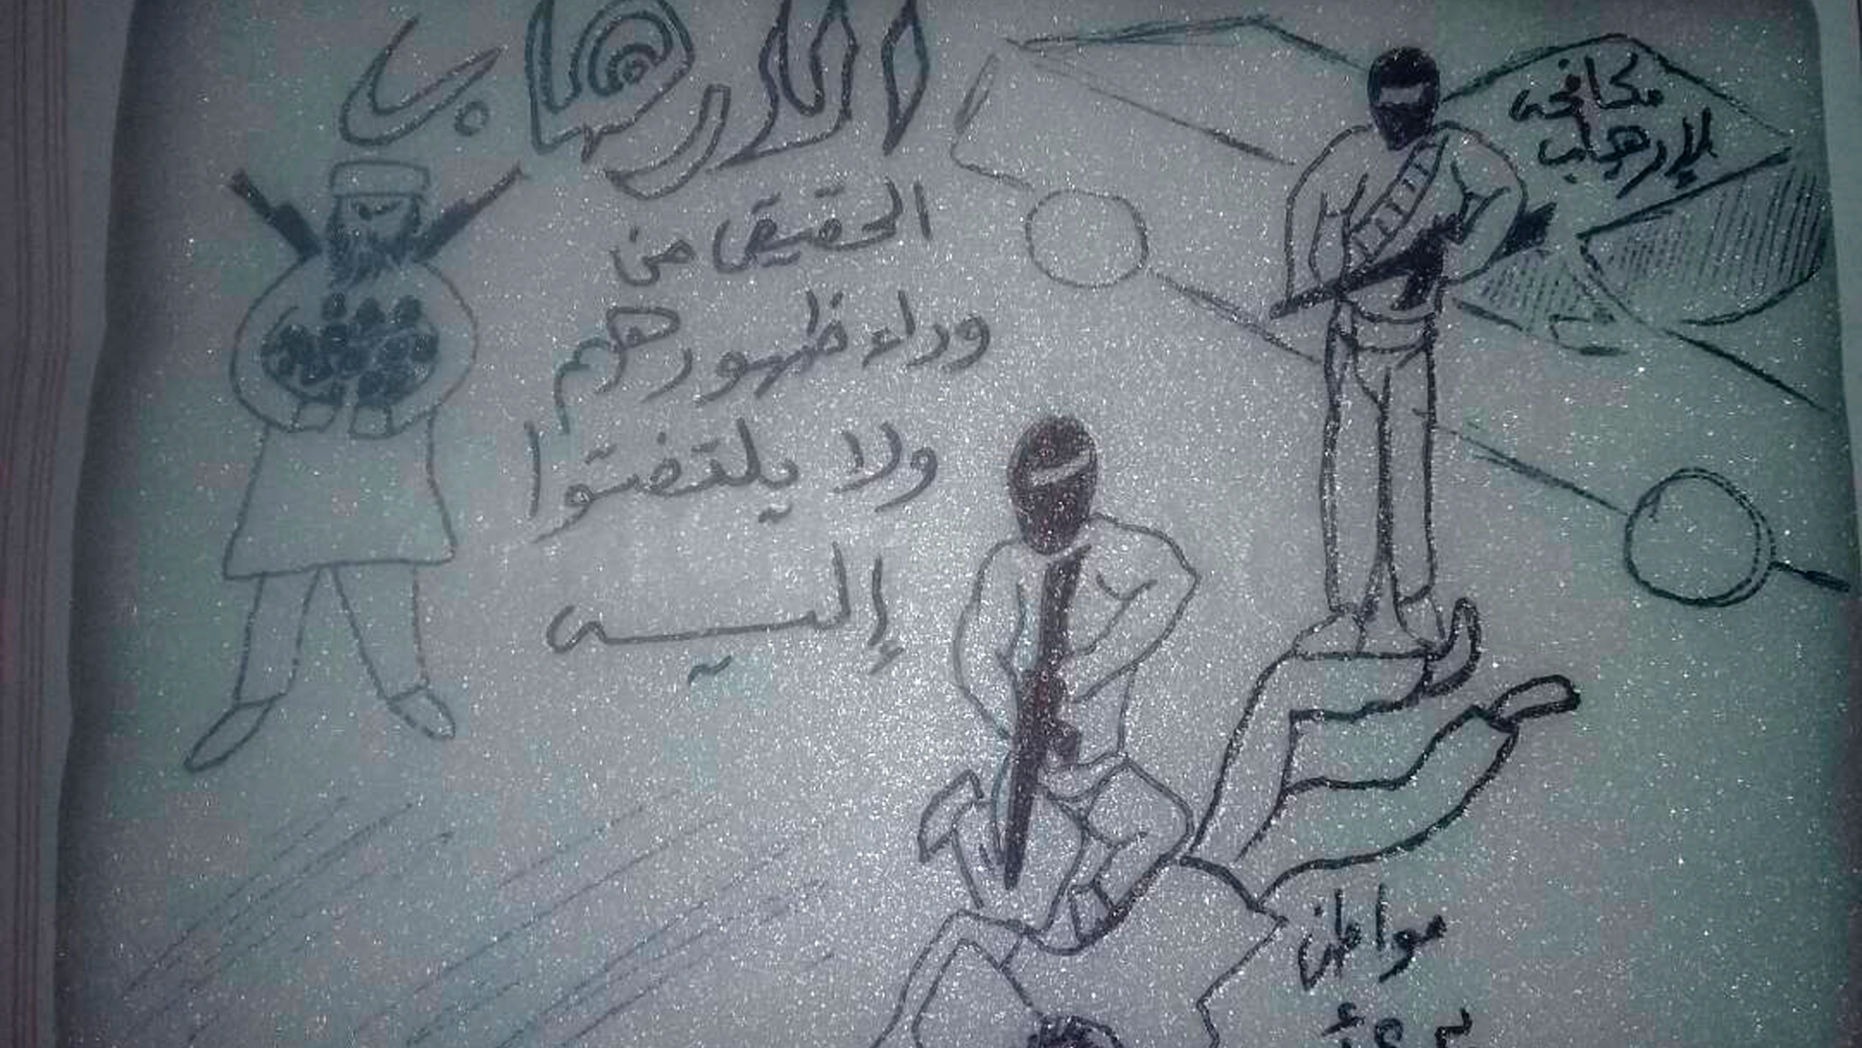 الارهاب
الحقيقي من
وراء ظهورهم
ولا يلتفتوا
إليه
مكافحه
لإرهاب
مواطن
برئ